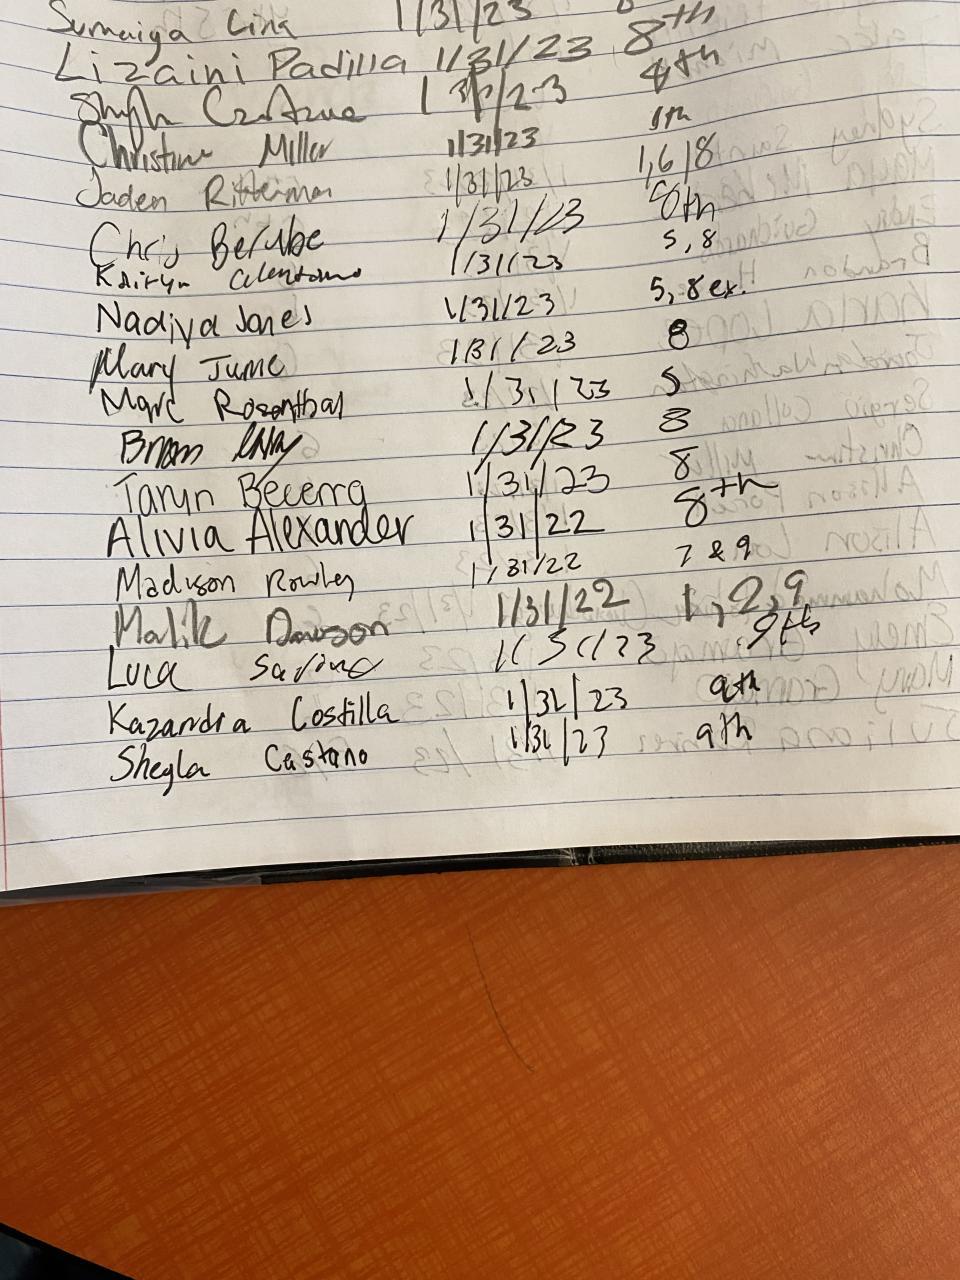 Sumaiya Lina 1/31/23
Lizaini Padilla 1/31/23 8th
1/31/23 8th
Christine Miller 1/31/23 8th
Jaden Ritterman 1/31/23 1,6/8
Chris Berube 1/31/23 8th
1/31/23 5,8
Nadiya Jones 1/31/23 5,8 ex!
Mary June 1/31/23 8
Marc Rosenthal 1/31/23 5
Brian 1/31/23 8
Taryn Becerra 1/31/23 8
Alivia Alexander 1/31/22 8th
Madison Rowley 1/31/22 7 & 9
Malik Dawson 1/31/22 1,2,9
Luca Savino 1/31/23 9th
Kazandra Costilla 1/31/23 9th
Sheyla Castano 1/31/23 9th